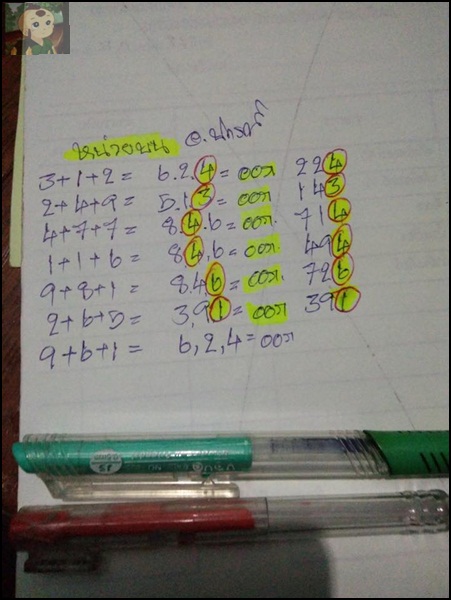 หน่วยบน อ.ปกรณ์
3+1+2= 6.2.4 = ออก 224
2+4+9= 5.1.3 = ออก 143
4+7+7= 8.4.6 = ออก. 714
1+1+6= 8.4.6 = ออก. 494
9+8+1= 8.4.6 = ออก. 726
2+6+5= 3,9,1 = ออก 391
9+6+1= 6,2,4 = ออก